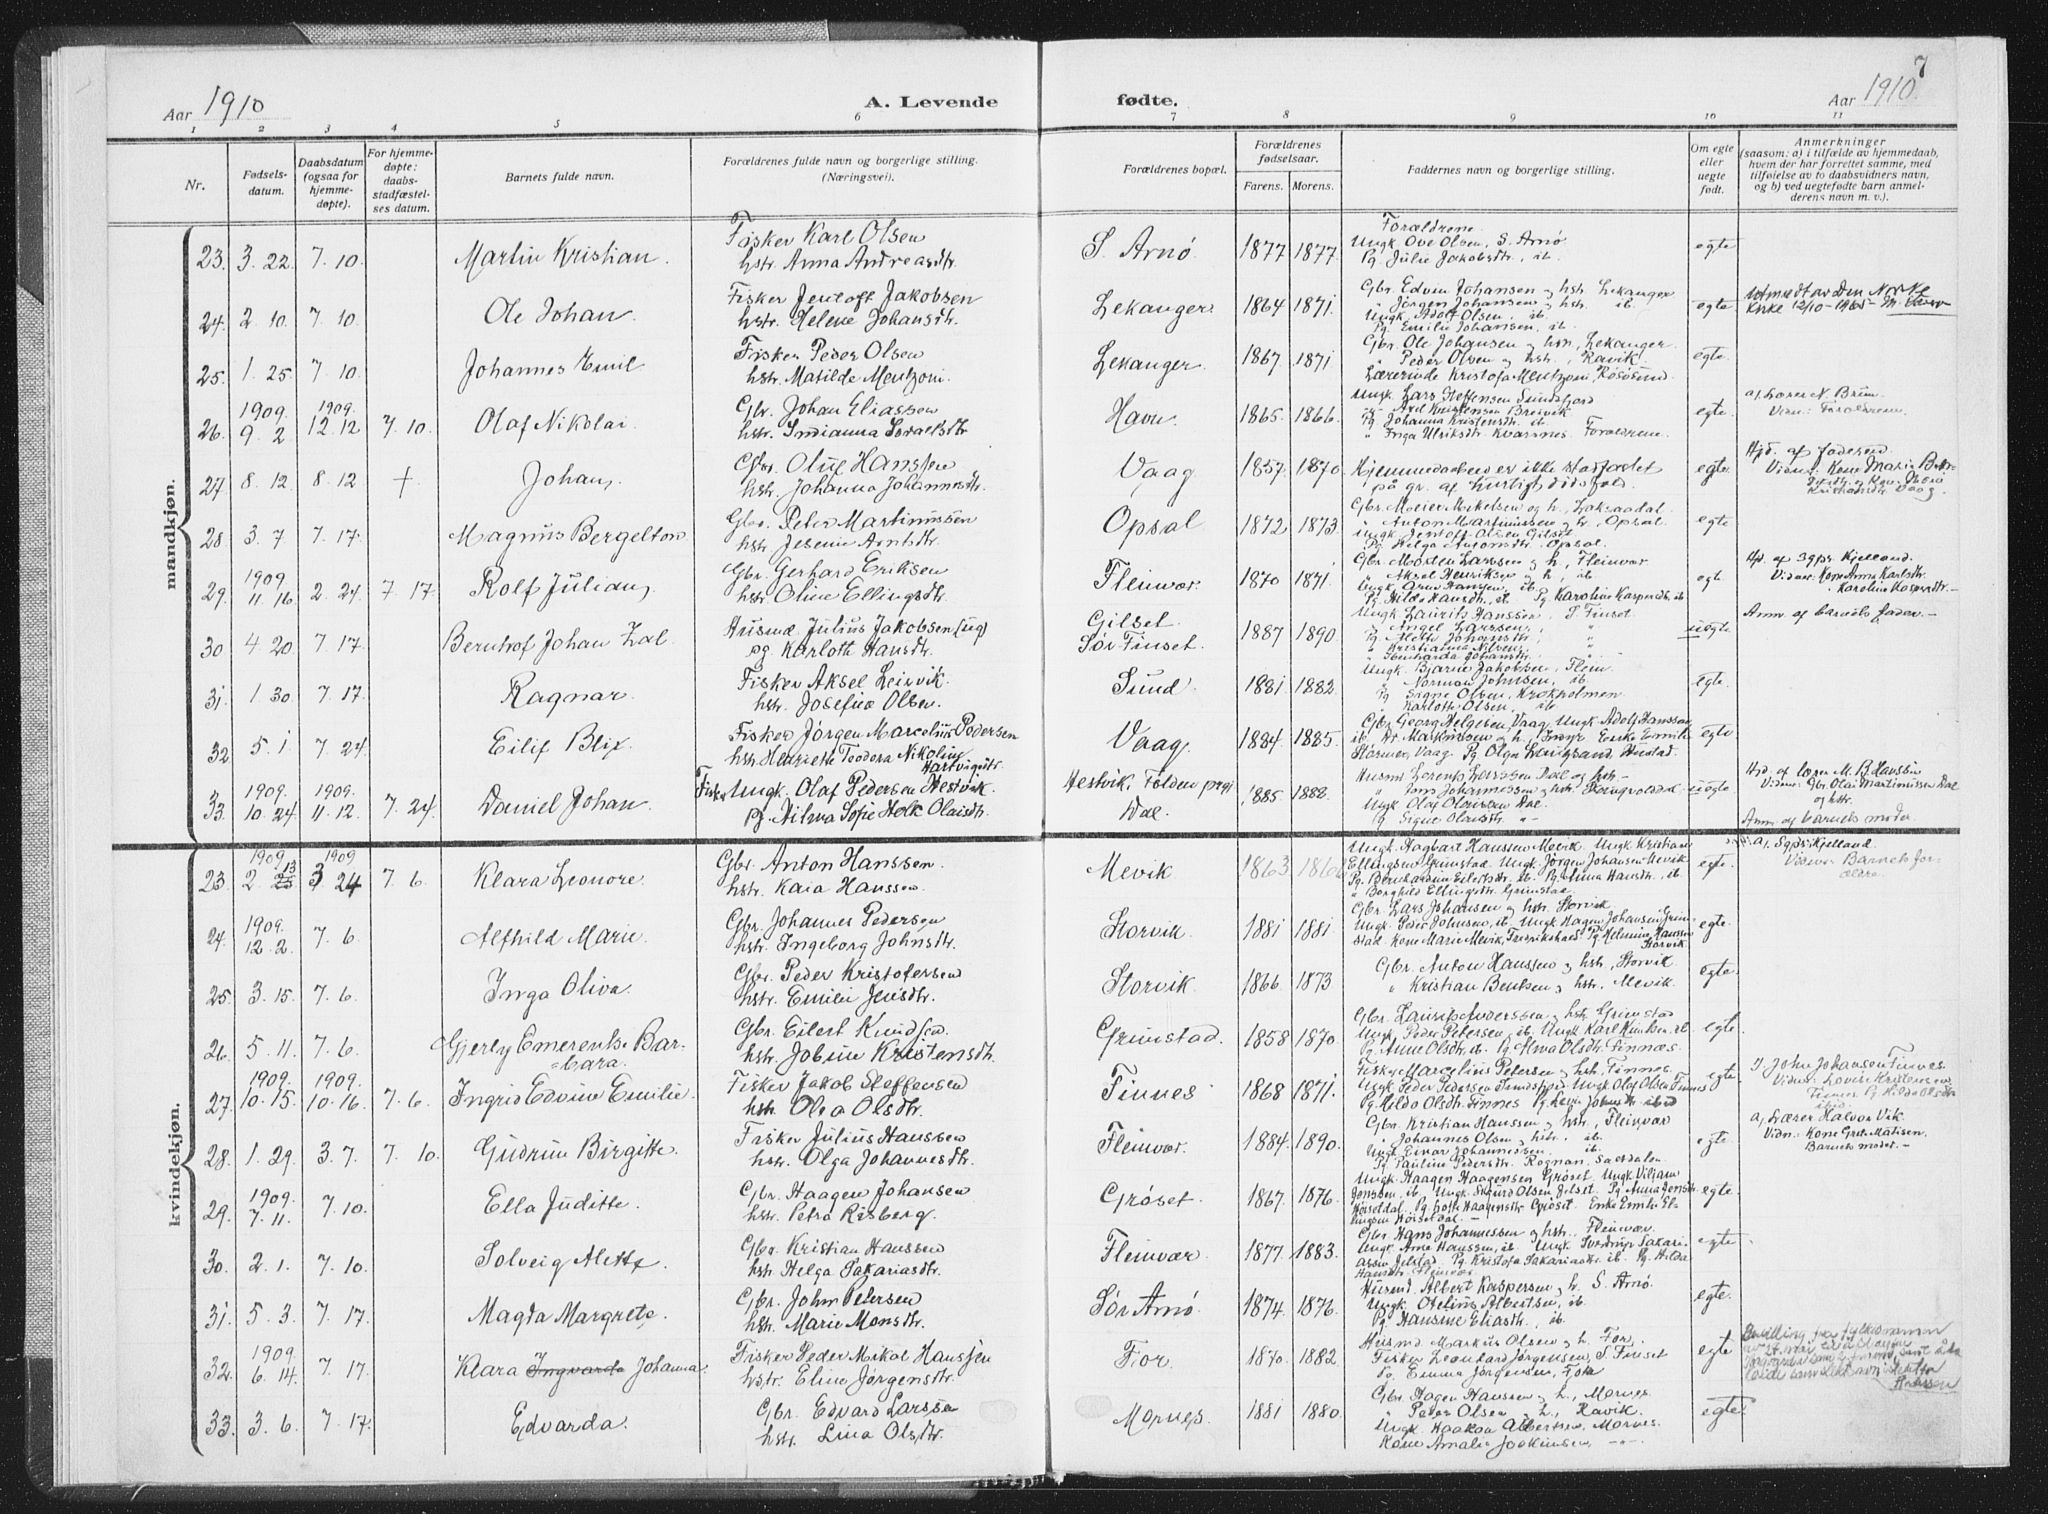 7
Aar 1910
A. Levende
fødte.
Aar 1910.
1 2 3 4 5 6 7 8 9 10 11
Nr.
Fødsels-
datum.
Daabsdatum
(ogsaa for
hjemme-
døpte).
For hjemme-
døpte:
daabs-
stadfæstel-
ses datum.
Barnets fulde navn.
Forældrenes fulde navn og borgerlige stilling.
(Næringsvei).
Forældrenes bopæl.
Forældrenes
fødselsaar.
Farens. Morens.
Faddernes navn og borgerlige stilling.
Om egte
eller
uegte
født.
Anmerkninger
(saasom: a) i tilfælde av hjemmedaab,
hvem der har forrettet samme, med
tilføielse av to daabsvidners navn,
og b) ved uegtefødte barn anmel-
derens navn m. v.).
mandkjøn.
23. 3. 22. 7. 10. Martin Kristian.
Fisker Karl Olsen
hstr. Anna Andreasdtr.
S. Arnø 1877 1877.
Forældrene
Ungk. Ove Olsen, S. Arnø
Pg. Julie Jakobsdtr., ib.
egte
24. 2. 10. 7. 10. Ole Johan.
Fisker Jentoft Jakobsen
hstr. Helene Johansdtr.
Lekanger 1864 1871.
Gbr. Edvin Johansen og hstr. Lekanger
" Jørgen Johansen og hstr. ib.
Ungk. Adolf Olsen, ib.
Pg. Emilie Johansen, ib.
egte
Utmeldt av Den Norske
Kirke 12/10-1965-
25. 1. 25. 7. 10. Johannes Emil
Fisker Peder Olsen
hstr. Matilde Mentzoni.
Lekanger. 1867. 1871
Gbr. Ole Johansen og hstr., Lekanger.
" Peder Olsen og hstr., Ravik.
Lærerinde Kristofa Mentzoni,
egte.
26. 1909. 9. 2 1909. 12. 12 7. 10. Olaf Nikolai
Gbr. Johan Eliassen
hstr. Indianna Israelsdtr
Havn. 1865. 1866
Ungk. Lars Steffensen Sundsfjord
" Axel Kristensen Breivik
Pg Johanna Kristensdtr. ib.
" Inga Ulriksdtr. Kvarsnes. Forældrene.
egte.
af Lærer N. Brun.
Vidn: Forældrene.
27 8. 12. 8. 12 † Johan,
Gbr. Oluf Hanssen
hstr. Johanna Johannesdtr.
Vaag 1857. 1870.
Hjemmedaaben er ikke stadfæstet
på gr. af hurtigt dødsfald.
egte.
Hjd. af faderen.
28 3. 7 7. 17. Magnus Bergelton
Gbr. Peter Martinussen
hstr. Jesenie Arntsdtr.
Opsal 1872 1873.
Gbr. Meier Mikelsen og h., Laksaadal
" Anton Martinussen og h., Opsal.
Ungk. Jentoft Olsen Gilset
Pg Helga Antonsdtr. Opsal.
egte
29. 1909 11. 16 2. 24. 7. 17. Rolf Julian,
Gbr. Gerhard Eriksen
hstr. Oline Ellingsdtr.
Fleinvær 1870 1871.
Gbr. Morten Larssen og h., Fleinvær
" Aksel Henriksen og h., ib.
Ungk. Arne Hansen, ib.
Pg. Hilda Hansdtr., ib. Pg. Karoline Kaspersdtr. ib
egt.
Hjd. af Sgpr. Kjelland.
Vidne: Kone Anna Karlsdtr.
" Karoline Kaspersdtr. -
30 4. 20. 7. 17. Berntrof Johan Zal.
Husmd. Julius Jakobsen (ug)
pg. Karloth Hansdtr.
Gilset.
Sør Finset. 1887 1890.
Ungk. Laurits Hanssen, S. Finset.
" Angel Larssen, "
Pg. Aleth Johansdtr. "
" Kristianna Nilsen, "
uegte
Anm. af barnets fader. -
31. 1. 30 7. 17. Ragnar.
Fisker Aksel Leirvik.
hstr. Josefine Olsen.
Sund. 1881 1882
Ungk. Bjarne Jakobsen, Flein.
" Norman Johnsen, ib.
Pg. Signe Olsen, Krokholmen
" Karloth Olsen, ib.
egte.
32 5. 1. 7. 24. Eilif Blix.
Fisker Jørgen Marcelius Pedersen
hstr. Henriette Teodora Nikoline
Hartvigsdtr.
Vaag. 1884. 1885.
Gbr. Georg Helgesen, Vaag. Ungk. Adolf Hanssen
Størmer, Vaag. Pg. Olga
egte
33. 1909. 10. 24 1909. 11. 12. 7. 24. Daniel Johan.
Fisker Ungk. Olaf Pedersen Hestvik
Pg. Nilma Sofie Holk Olaisdtr.
Hestvik, Folden prgj
Dal. 1885. 1888.
Husm. Lorents Larssen Dal og hstr. -
" Tom Johannessen og hstr.
Ungk. Olaf Olaisen Dal.
Pg. Signe Olaisdtr. - " -
uegte
Hjd. af lærer M. B. Hanssen
Vidne: Gbr. Olai Martinussen Dal
og hstr.
Anm. af barnets moder.
kvindekjøn.
23. 1909 2. 13 3 1909 24 7. 6. Klara Leonore.
Gbr. Anton Hanssen.
hstr. Kaia Hanssen.
Mevik 1863
Ungk. Hagbart Hanssen Mevik. Ungk Kristian
Ellingsen Grimstad. Ungk. Jørgen Johansen Mevik.
Pg. Bernhardine Eilertsdtr. ib. Pg. Alma Hansdtr. ib
" Borghild Ellingsdtr. Grimstad.
egte.
af Sgpr. Kjelland.
Vidner Barnets for-
ældre.
24. 1909. 12. 2. 7. 6. Alfhild Marie.
Gbr. Johannes Pedersen
hstr. Ingeborg Johnsdtr.
Storvik. 1881 1881.
Gbr. Lars Johansen og hstr. Storvik
Ungk. Peder Johnsen, ib. Ungk. Hagen Johansen Grim-
stad. Kone Marie Mevik, Fredrikshaes. Pg. Helmine Hanssen
Storvik
egte.
25. 3. 15. 7. 6. Inga Oliva.
Gbr. Peder Kristofersen
hstr. Emilie Jensdtr.
Storvik. 1866 1873
Gbr. Anton Hanssen og hstr., Storvik.
" Kristian Bentsen og hstr., Mevik.
egte.
26. 5. 11. 7. 6. Gjerly Emerentse Bar-
bara.
Gbr. Eilert Knudsen.
hstr. Jobine Kristensdtr.
Grimstad. 1858 1870.
Gbr. Laurits Anderssen og hstr. Grimstad
Ungk. Peder Petersen, ib. Ungk. Karl Knutsen ib
Pg. Anne Olsdtr. ib. Pg. Alvva Olsdtr. Finnæs.
egte.
27. 1909. 10. 15. 1909. 10. 16. 7. 6. Ingrid Edvine Emilie.
Fisker Jakob Steffensen
hstr. Olga Olsdtr.
Finnes 1868 1871.
Fisker Marcelius Petersen og hstr. Finnes.
Ungk Peder Pedersen Sundsfjord. Ungk Olaf Olsen Finnes
Pg. Hilda Olsdtr. Finnes
egte.
J. John Johansen Finnes.
28. 1. 29. 3. 7. 7. 10. Gudrun Birgitte.
Fisker Julius Hanssen
hstr. Olga Johannesdtr.
Fleinvær. 1884. 1890.
Gbr. Kristian Hanssen og hstr., Fleinvær
" Johannes Olsen og hstr. ib.
Ungk Einar Johannessen. ib.
Pg. Pauline Pedersdtr. Rognan, Saltdalen
egte.
af Lærer Halvor Vik.
Vidn: Kone Grete Matisen.
Barnets moder. -
29. 1909. 7. 11. 7. 10. Ella Juditte.
Gbr. Haagen Johansen
hstr. Petra Risberg.
Grøset. 1867. 1876.
Ungk. Haagen Haagensen Grøset. Ungk. Viljam
Jenssen, ib. Ungk. Sigurd Olsen Jelset. Pg. Anna Jensdtr.
egte.
30. 2. 1. 7. 10. Solveig Alette
Gbr. Kristian Hanssen
hstr. Helga Sakariasdtr.
Fleinvær. 1877. 1883.
Gbr. Hans Johannessen og hstr. Fleinvær.
Ungk. Arne Hanssen, ib. Ungk. Sverdrup Sakari-
assen Jelstad. Pg. Kristofa Sakariasdtr. ib. Pg. Hilda
Hansdtr. Fleinvær.
egte.
31. 5. 3. 7. 17. Magda Margrete.
Gbr. John Petersen
hstr. Marie Monsdtr.
Sør Arnø. 1874. 1876.
Husmd. Albert Kaspersen og h. S. Arnø.
Ungk. Otelius Albertsen, ib.
Pg. Hansine Eliasdtr., ib.
egte.
32. 1909. 6. 14. 7. 17. Klara Ingvarda Johanna.
Fisker Peder Mikal Hanssen
hstr. Eline Jørgensdtr.
For. 1870. 1882.
Husmd. Markus Olsen og h. For.
Fisker Leonhard Jørgensen, S. Finset
Pg. Emma Jørgensen, For.
egte
Bevilling fra fylkesmannen
33. 3. 6. 7. 17. Edvarda.
Gbr. Edvard Larssen
hstr. Lina Olsdtr.
Mornes. 1881 1880.
Gbr. Hagen Hanssen og h., Mornes.
" Peder Olsen og h., Ravik.
Ungk Haakon Albertsen, Mornes.
Kone Amalie Joakimsen, - " -.
egte.